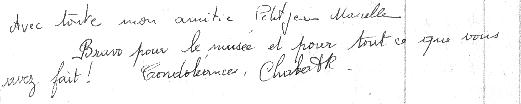 Avec toute mon amitié Petitjean Marcelle
Bravo pour le musée et pour tout ce que vous
avez fait ! Condoléances,